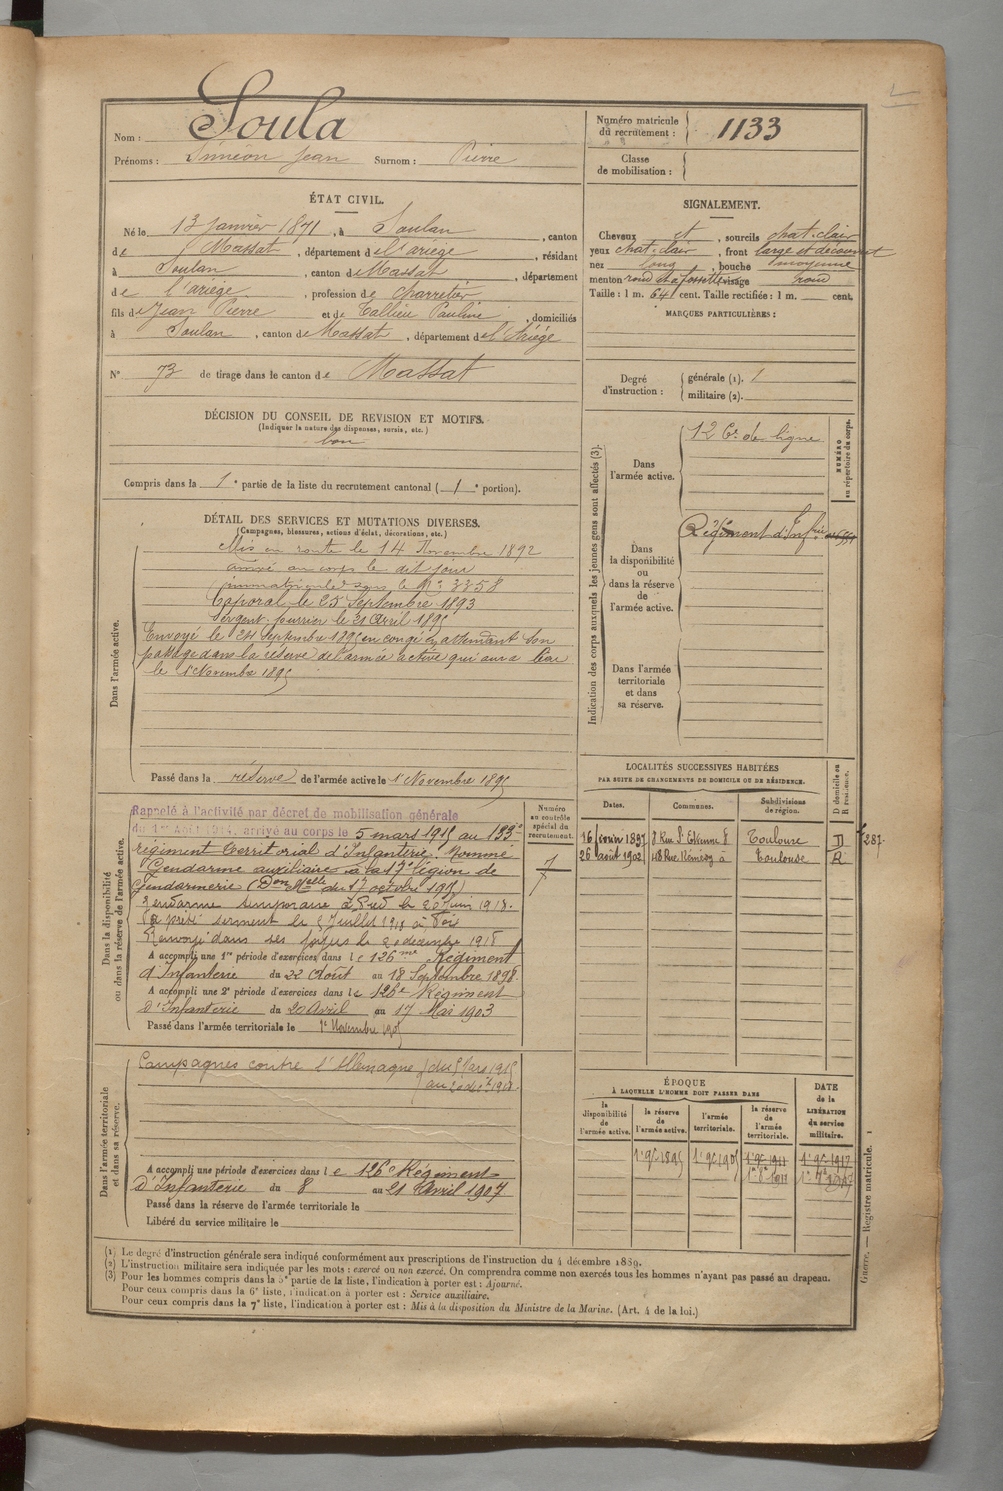 Nom : Soula
Prénoms : Siméon Jean Surnom : Pierre
Numéro matricule du recrutement : 1133
Classe de mobilisation :
ÉTAT CIVIL.
Né le 13 Janvier 1871, à Soulan, canton
de Massat, département de l'ariège, résidant
à Soulan, canton de Massat, département
de l'ariège, profession de charretier
fils de Jean Pierre et de Pauline, domiciliés
à Soulan, canton de Massat, département de l'Ariége
N° 73 de tirage dans le canton de Massat
DÉCISION DU CONSEIL DE REVISION ET MOTIFS.
(Indiquer la nature des dispenses, sursis, etc.)
bon
Compris dans la 1e partie de la liste du recrutement cantonal (1e portion).
SIGNALEMENT.
Cheveux et, sourcils chat. clair
yeux chat. clair, front large et découvert
nez long, bouche moyenne
menton rond et à fossette visage rond
Taille : 1 m. 641 cent. Taille rectifiée : 1 m. cent.
MARQUES PARTICULIÈRES :
Degré d'instruction :
générale (1).
militaire (2).
DÉTAIL DES SERVICES ET MUTATIONS DIVERSES.
(Campagnes, blessures, actions d'éclat, décorations, etc.)
Dans l'armée active.
Mis en route le 14 Novembre 1892
arrivé au corps le dit jour
immatriculé sous le N° 3358
Caporal le 25 Septembre 1893
Sergent fourrier le 21 Avril 1895
Envoyé le 24 Septembre 1895 en congé en attendant son
passage dans la réserve de l'armée active qui aura lieu
le 1er Novembre 1895
Passé dans la réserve de l'armée active le 1er Novembre 1895
Indication des corps auxquels les jeunes gens sont affectés (3).
NUMÉRO au répertoire du corps.
Dans l'armée active.
12 Cie de ligne
Dans la disponibilité ou dans la réserve de l'armée active.
Régiment d'Infrie
Dans l'armée territoriale et dans sa réserve.
Dans la disponibilité ou dans la réserve de l'armée active.
Rappelé à l'activité par décret de mobilisation générale
du 1er Août 1914, arrivé au corps le 5 mars 1915 au 133e
régiment territorial d'Infanterie. Nommé
Gendarme auxiliaire à la 17e légion de
Gendarmerie (Don Melle du 17 octobre 1915)
Gendarme temporaire à Pied le 20 Juin 1918.
a prêté serment le 5 Juillet 1918 à Foix
Renvoyé dans ses foyers le 20 décembre 1918
A accompli une 1re période d'exercices dans le 126me Régiment
d'Infanterie du 22 Août au 18 Septembre 1898
A accompli une 2e période d'exercices dans le 126e Régiment
D'Infanterie du 20 Avril au 17 Mai 1903
Passé dans l'armée territoriale le 1er Novembre 1905
Numéro au contrôle spécial du recrutement.
LOCALITÉS SUCCESSIVES HABITÉES
PAR SUITE DE CHANGEMENTS DE DOMICILE OU DE RÉSIDENCE.
Dates. Communes. Subdivisions de région. D domicile ou R résidence.
16 février 1897 8 Rue St Etienne 8 Toulouse D 287
26 août 1902 48 Rue Toulouse R
Dans l'armée territoriale et dans sa réserve.
Campagnes contre l'Allemagne du 5 Mars 1915
au 20 déc. 1918.
A accompli une période d'exercices dans le 126e Régiment
D'Infanterie du 8 au 21 Avril 1907
Passé dans la réserve de l'armée territoriale le
Libéré du service militaire le
ÉPOQUE
À LAQUELLE L'HOMME DOIT PASSER DANS
DATE de la LIBÉRATION du service militaire.
la disponibilité de l'armée active. la réserve de l'armée active. l'armée territoriale. la réserve de l'armée territoriale.
1er 9bre 1895 1er 9bre 1905 1er 9bre 1911 1er 9bre 1917
(1) Le degré d'instruction générale sera indiqué conformément aux prescriptions de l'instruction du 4 décembre 1889.
(2) L'instruction militaire sera indiquée par les mots : exercé ou non exercé. On comprendra comme non exercés tous les hommes n'ayant pas passé au drapeau.
(3) Pour les hommes compris dans la 5e partie de la liste, l'indication à porter est : Ajourné.
Pour ceux compris dans la 6e liste, l'indication à porter est : Service auxiliaire.
Pour ceux compris dans la 7e liste, l'indication à porter est : Mis à la disposition du Ministre de la Marine. (Art. 4 de la loi.)
Guerre. — Registre matricule. 1